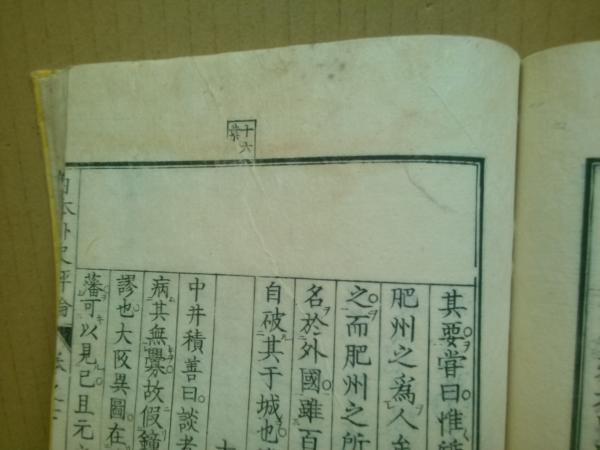 十六
其要嘗曰惟
肥州之爲人
之而肥州之所
名於外國雖百
自破其于城也
中井積善曰談者
病其無釁故假鐘
謬也大阪異圖在
藩可以見已且元
本外史評論